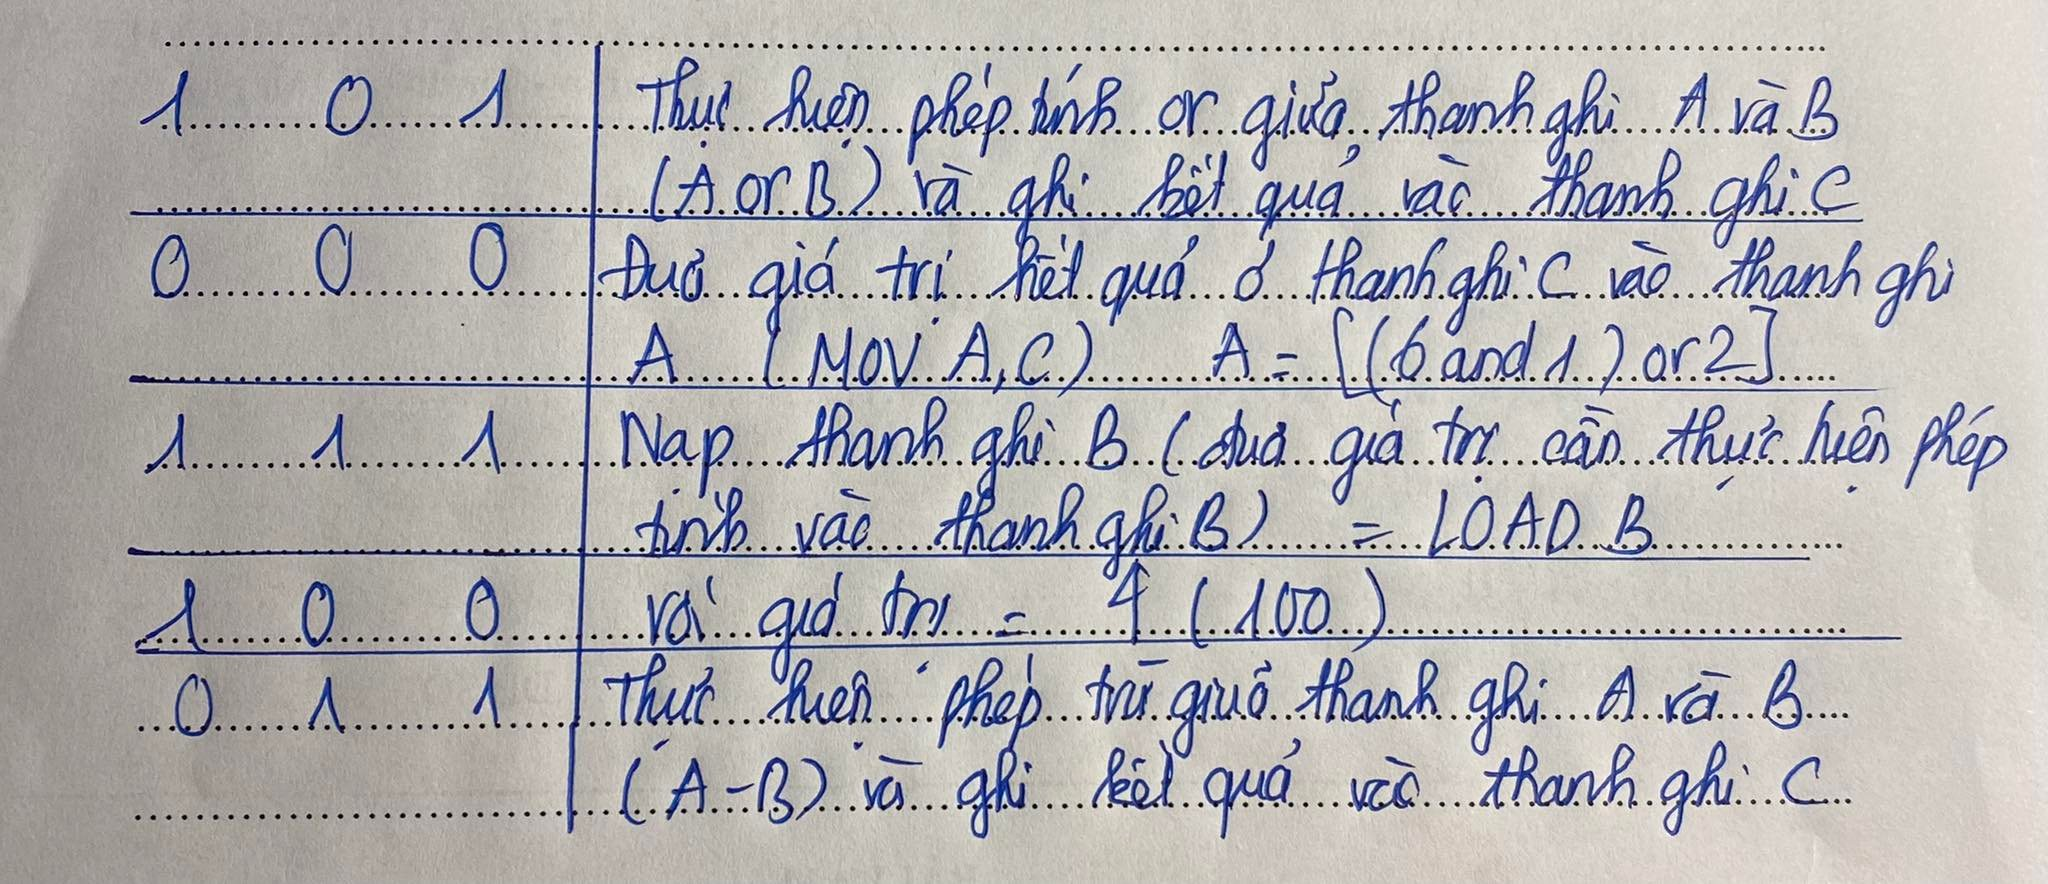 1 0 1 Thực hiện phép tính or giữa thanh ghi A và B
(A or B) và ghi kết quả vào thanh ghi C
0 0 0 Đưa giá trị kết quả ở thanh ghi C vào thanh ghi
A (MOV A, C) A = [(6 and 1) or 2]
1 1 1 Nạp thanh ghi B (đưa giá trị cần thực hiện phép
tính vào thanh ghi B) = LOAD B
1 0 0 với giá trị = 4 (100)
0 1 1 Thực hiện phép trừ giữa thanh ghi A và B
(A - B) và ghi kết quả vào thanh ghi C